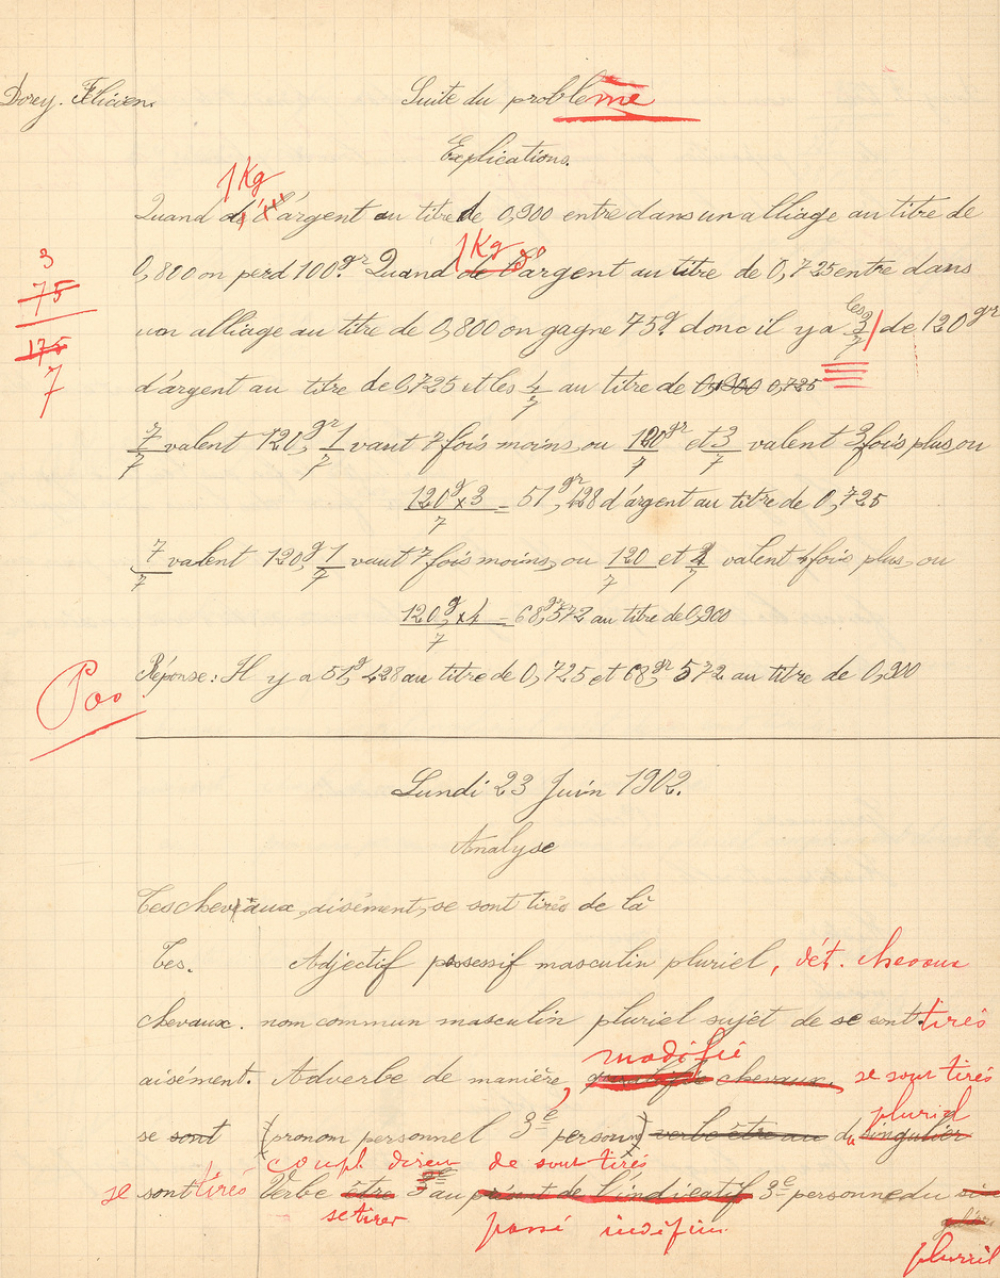 Dorey. Félicien.
Suite du problème
Explications.
1 Kg
Quand de l'argent au titre de 0,900 entre dans un alliage au titre de
1 Kg
0,800 on perd 100gr. Quand de l'argent au titre de 0,725 entre dans
3
75
175
7
les
un alliage au titre de 0,800 on gagne 75g. donc il y a 3/7 de 120gr
d'argent au titre de 0,725 et les 4/7 au titre de 0,725
7/7 valent 120gr, 1/7 vaut 7 fois moins, ou 120gr/7 et 3/7 valent 3 fois plus, ou
120g x 3 / 7 = 51gr,428 d'argent au titre de 0,725
7/7 valent 120g, 1/7 vaut 7 fois moins, ou 120/7 et 4/7 valent 4 fois plus, ou
120g x 4 / 7 = 68gr,572 au titre de 0,900
Réponse : Il y a 51g,428 au titre de 0,725 et 68gr,572 au titre de 0,900
Lundi 23 Juin 1902.
Analyse
Tes chevaux, aisément, se sont tirés de là
Tes. Adjectif possessif masculin pluriel, dét. chevaux
chevaux. nom commun masculin pluriel sujet de se sont tirés
modifie
aisément. Adverbe de manière, chevaux. se sont tirés
pluriel
se sont (pronom personnel 3e personne) verbe être au du singulier
compl. direct de sont tirés
se sont tirés Verbe être au présent de l'indicatif 3e personne du
se tirer passé indéfini
pluriel